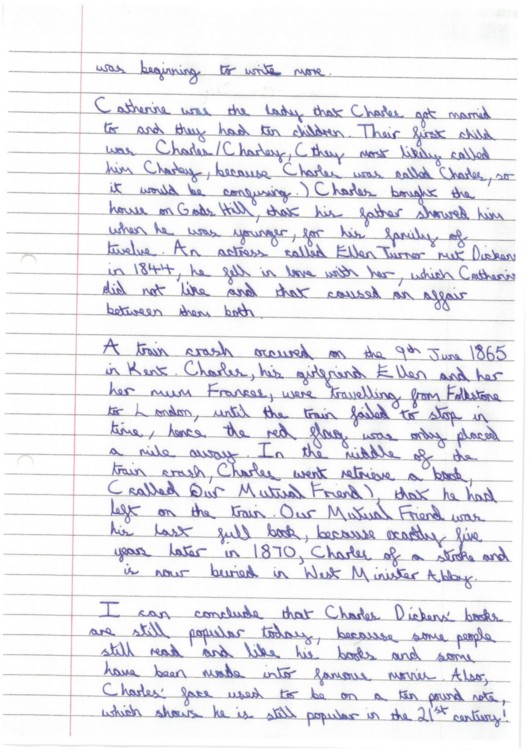 was beginning to write more.
Catherine was the lady that Charles got married
to and they had ten children. Their first child
was Charles/Charley, (they most likely called
him Charley, because Charles was called Charles, so
it would be confusing.) Charles bought the
house on Gads Hill, that his father showed him
when he was younger, for his family of
twelve. An actress called Ellen Turner met Dickens
in 1844, he fell in love with her, which Catherine
did not like and that caused an affair
between them both.
A train crash occured on the 9th June 1865
in Kent. Charles, his girlfriend Ellen and her
her mum Frances, were travelling from Folkstone
to London, until the train failed to stop in
time, hence the red flag was only placed
a mile away. In the middle of the
train crash, Charles went retrieve a book,
(called Our Mutual Friend), that he had
left on the train. Our Mutual Friend was
his last full book, because exactly five
years later in 1870, Charles of a stroke and
is now buried in West Minister Abbey.
I can conclude that Charles Dickens' books
are still popular today, because some people
still read and like his books and some
have been made into famous movies. Also,
Charles' face used to be on a ten pound note,
which shows he is still popular in the 21st century!